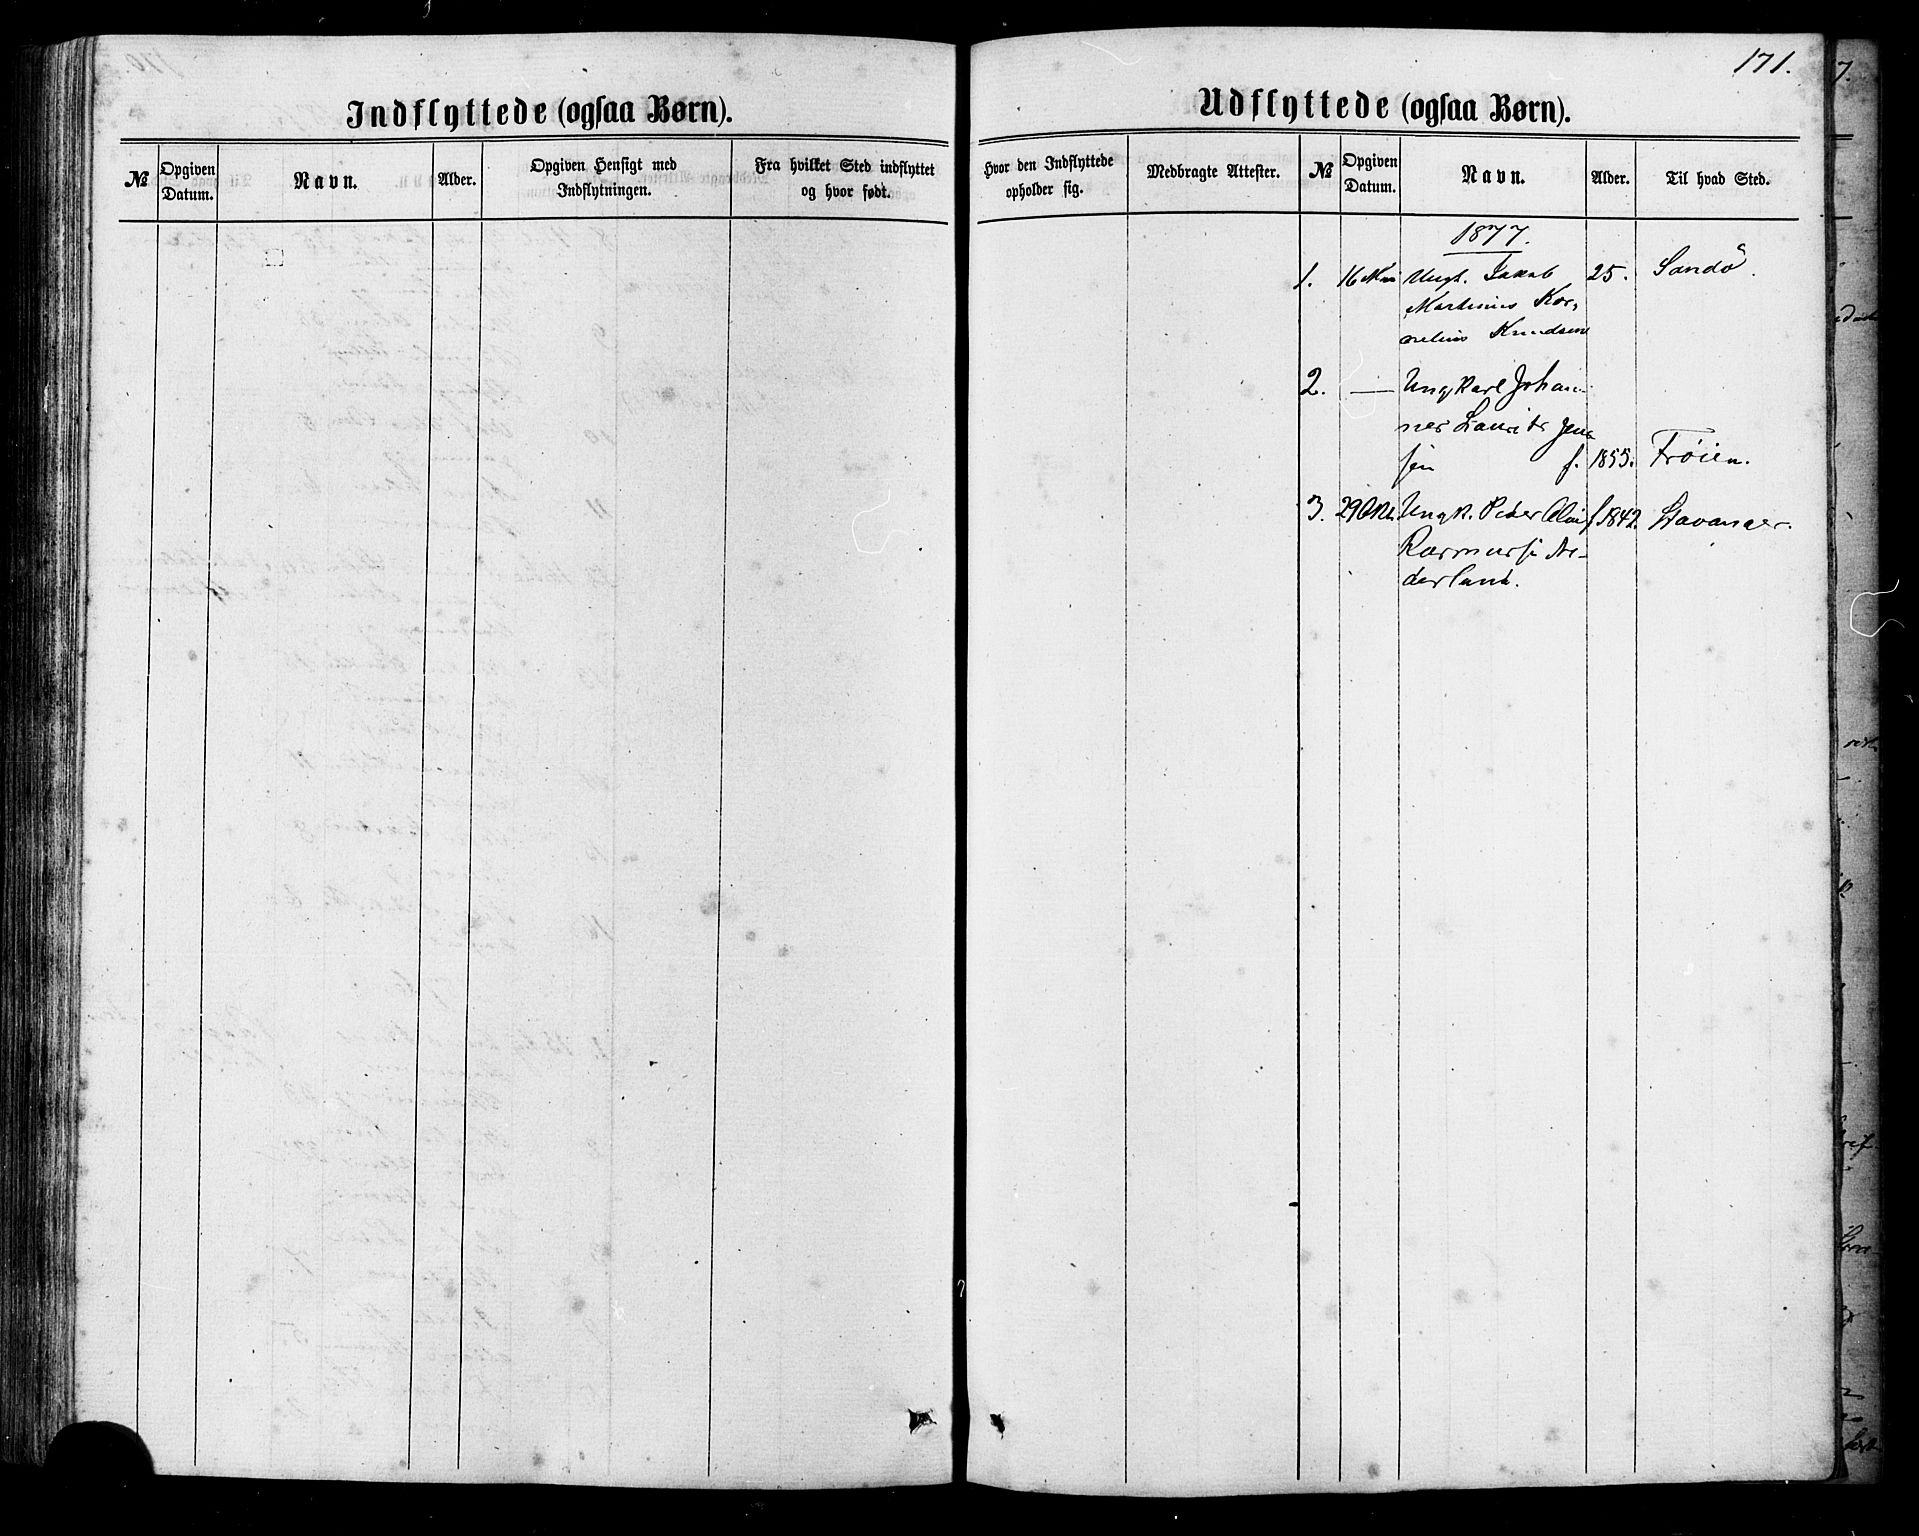 Indflyttede (ogsaa Børn).
№
Opgiven Datum.
Navn.
Alder.
Opgiven Hensigt med Indflytningen.
Fra hvilket Sted indflyttet og hvor født.
171.
Udflyttede (ogsaa Børn).
Hvor den Indflyttede opholder sig.
Medbragte Attester.
№
Opgiven Datum.
Navn.
Alder.
Til hvad Sted.
1877.
1. 16 Mai Ungk. Jakob 25. Sandö.
Martinus Kor-
nelius Knudsen
2. — Ungkarl Johan-
nes Laurits Jen-
sen f. 1855. Frøien.
3. 29 Okt. Ungk. Peder f 1842. Stavanger.
Rasmus Ne-
derland.